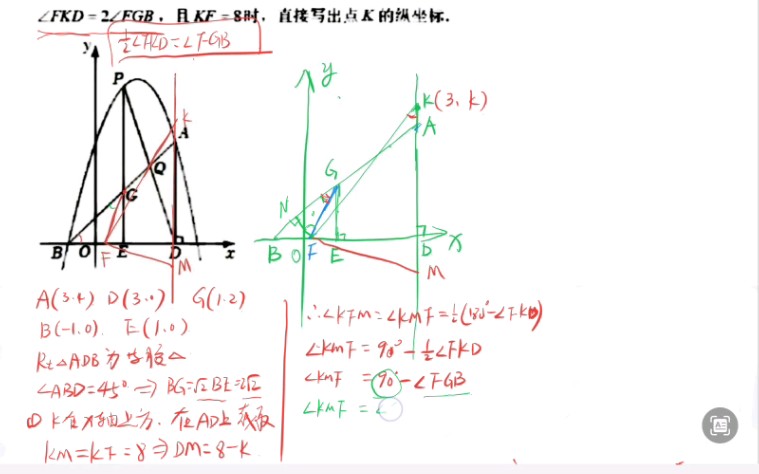 ∠FKD=2∠FGB，且 KF=8时，直接写出点 K 的纵坐标.
½∠FKD=∠FGB
y
P
K
A
Q
G
B O F E D x
M
y
K(3, k)
A
G
N
B O F E D x
M
A(3,4) D(3,0) G(1,2)
B(-1,0) E(1,0)
Rt△ADB为等腰△
∠ABD=45° ⇒ BG=√2BE=2√2
① K在x轴上方，在AD上截取
KM=KF=8 ⇒ DM=8-K
∴∠KFM=∠KMF=½(180°-∠FKD)
∠KMF=90°-½∠FKD
∠KMF =90°-∠FGB
∠KMF =∠